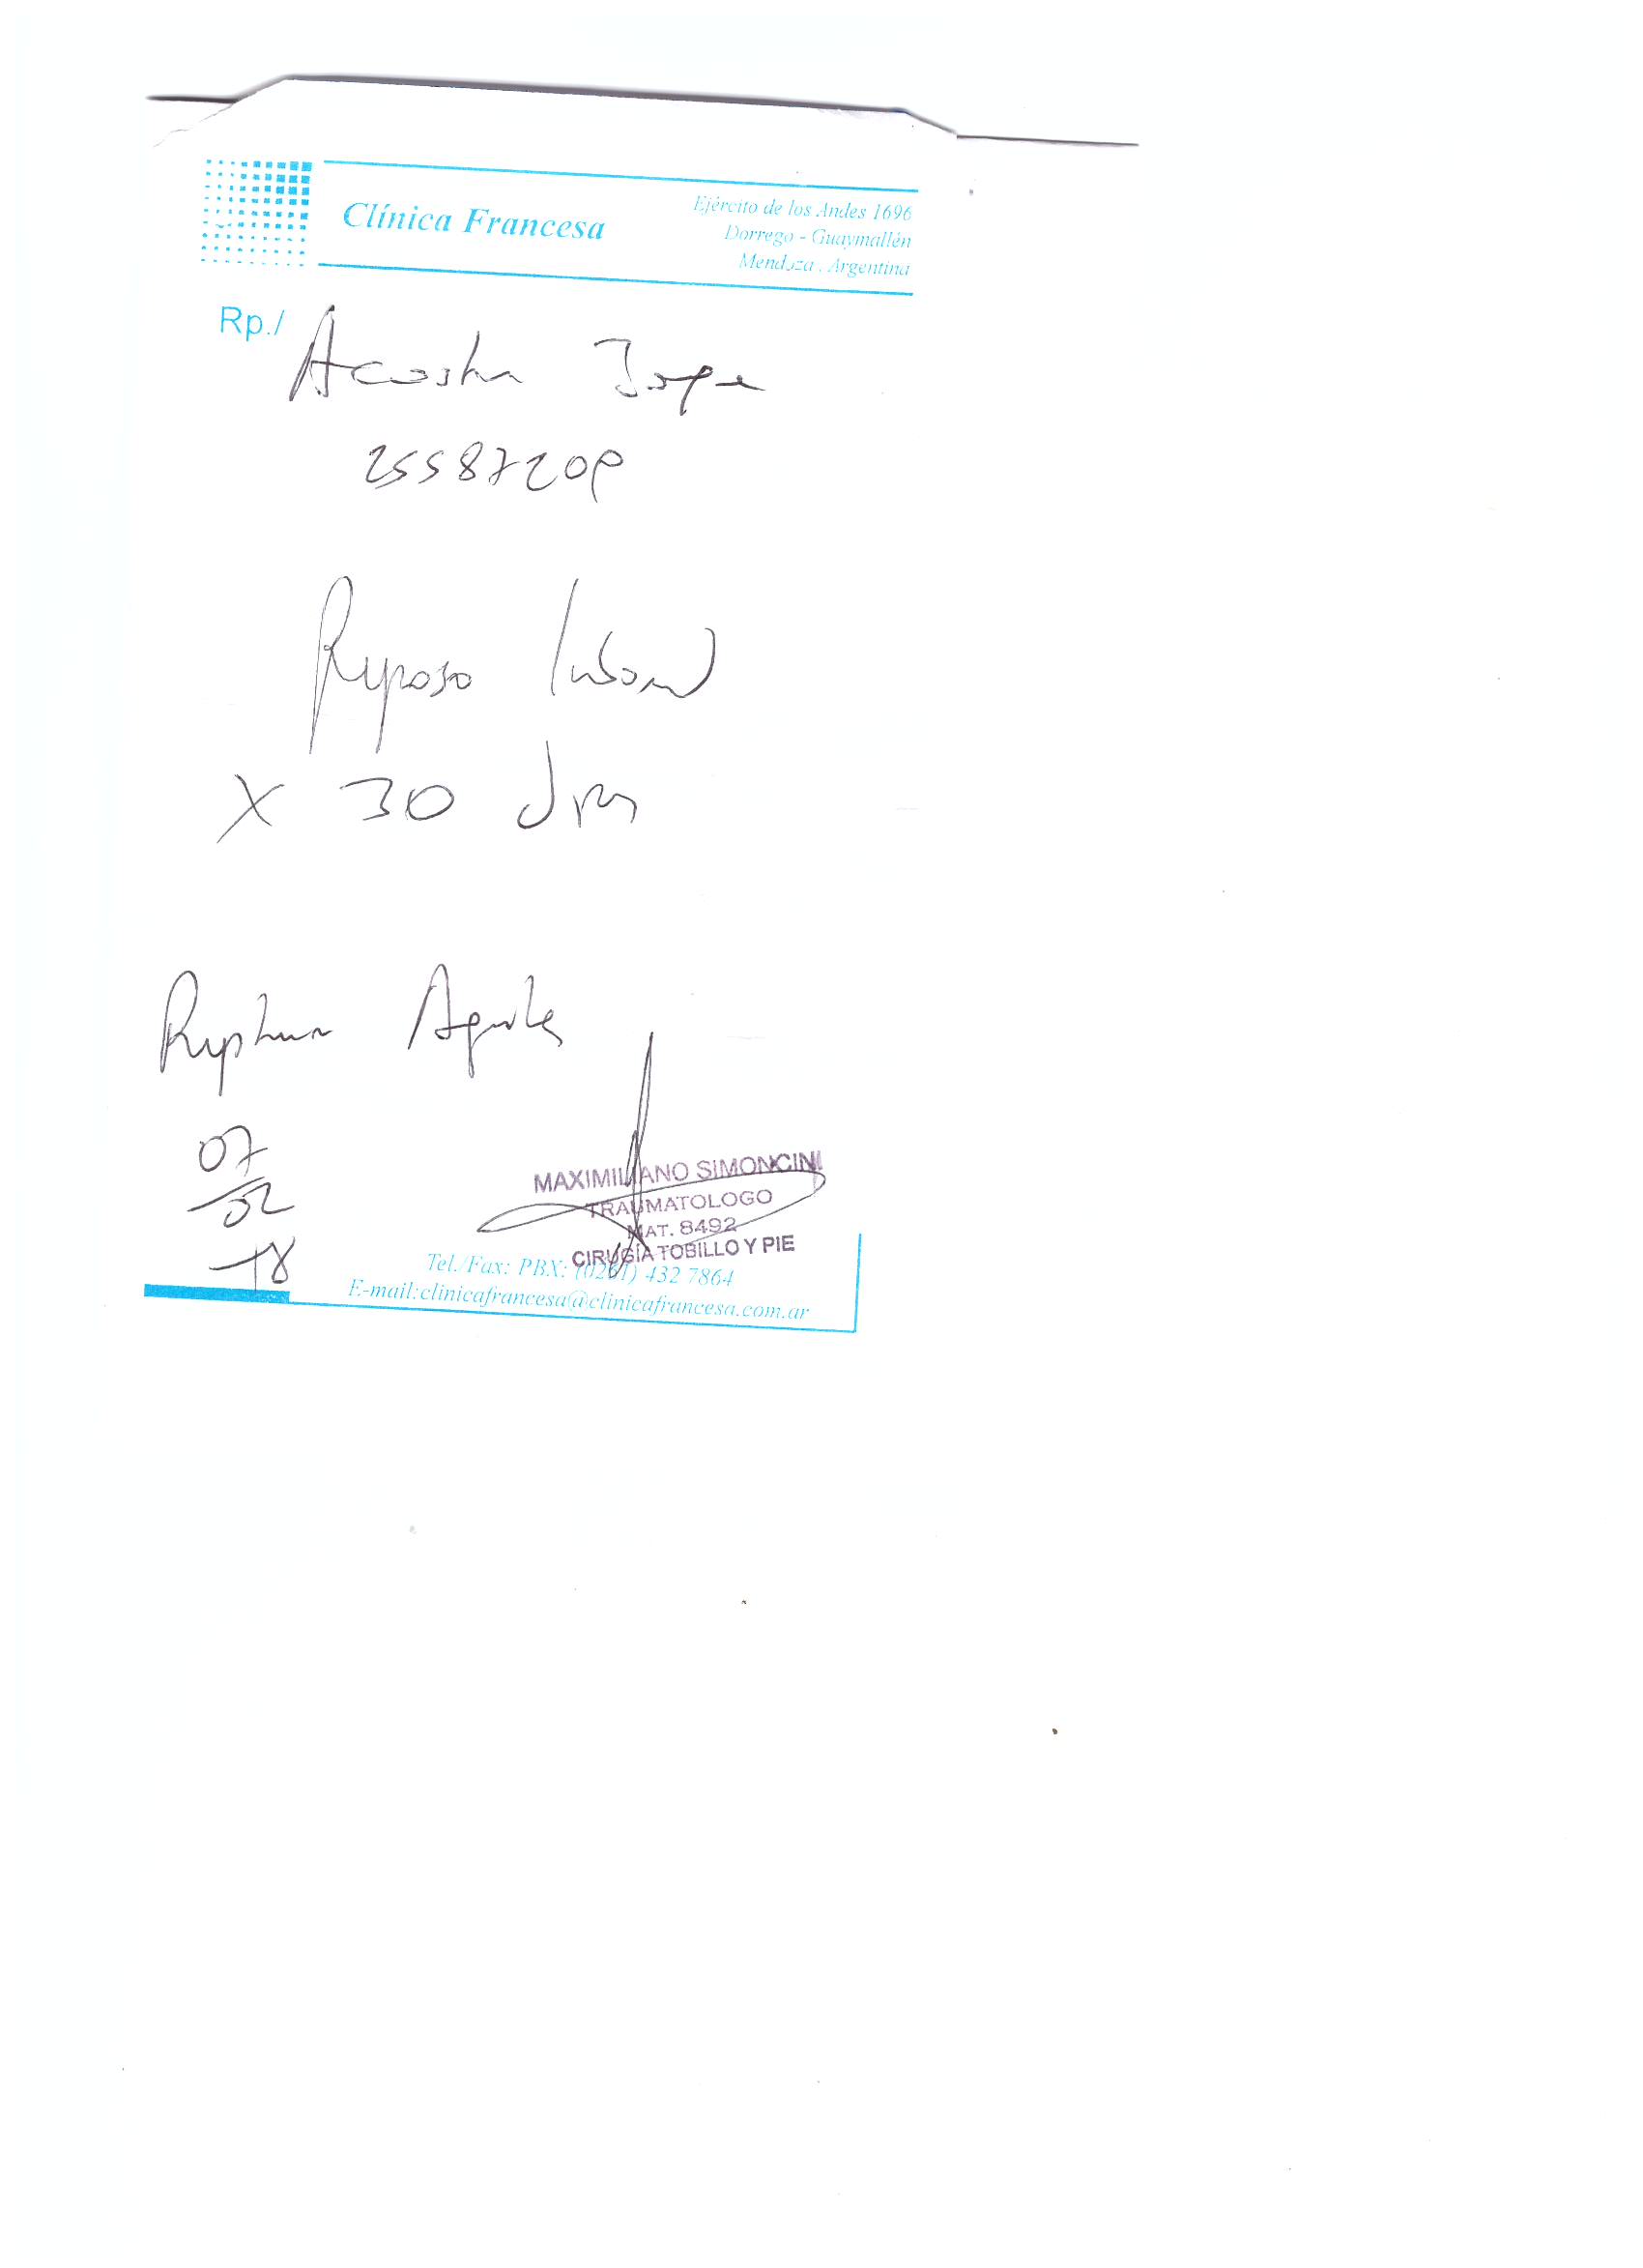 Clínica Francesa
Ejército de los Andes 1696
Dorrego - Guaymallén
Mendoza . Argentina
Rp./
Acosta Jorge
25587209
Reposo laboral
X 30 dias
Ruptura Aquiles
07
02
18
MAXIMILIANO SIMONCINI
TRAUMATOLOGO
MAT. 8492
CIRUGÍA TOBILLO Y PIE
Tel./Fax: PBX: (0261) 432 7864
E-mail:clinicafrancesa@clinicafrancesa.com.ar